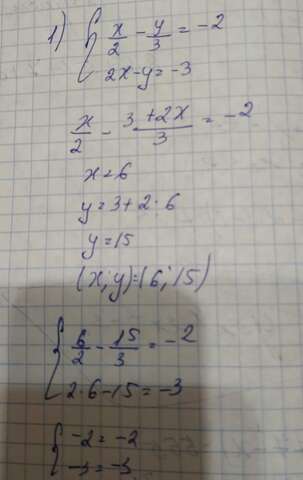 1) { x/2 - y/3 = -2
2x-y=-3
x/2 - 3+2x/3 = -2
x=6
y=3+2·6
y=15
(x;y)=(6;15)
{ 6/2 - 15/3 = -2
2·6-15=-3
{ -2=-2
-3=-3